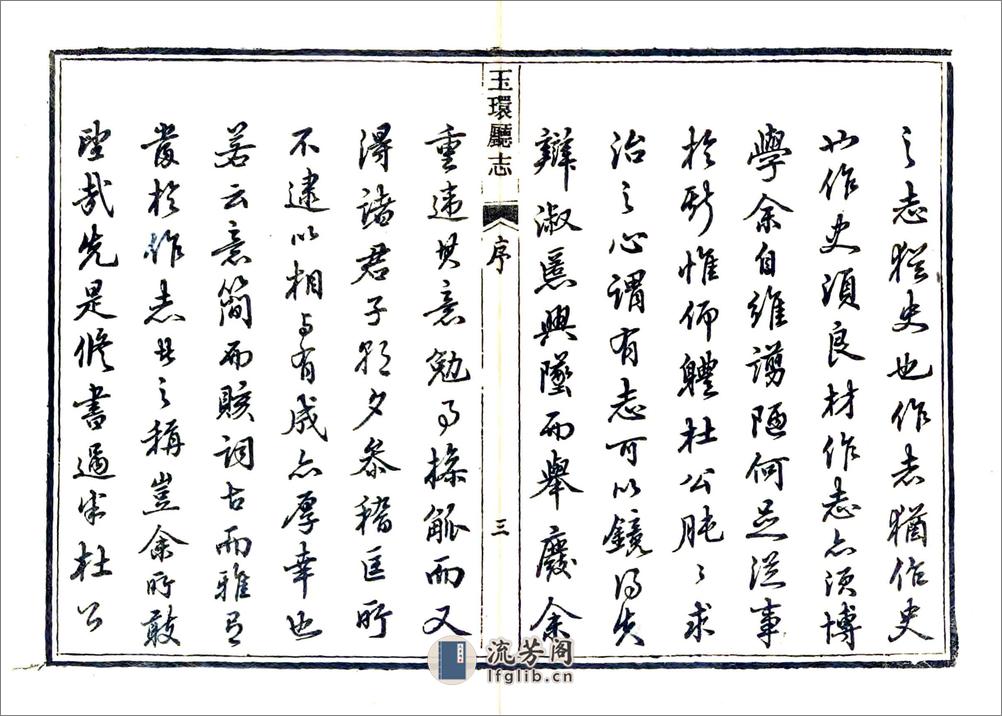 之志猶史也作志猶作史
也作史須良材作志亦須博
學余自維謭陋何足從事
於斯惟仰體杜公肫〻求
治之心謂有志可以鏡得失
辨淑慝興墜而舉廢余
玉環廳志
序
三
重違其意勉為操觚而又
得諸君子朝夕參稽匡所
不逮以相與有成亦厚幸也
若云意簡而賅詞古而雅有
當於作志者之稱豈余所敢
望哉先是修書過半杜公
流芳阁
lfglib.cn